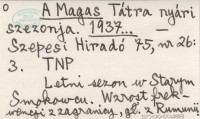 o A Magas Tátra nyári
szezonja. 1937... —
Szepesi Hiradó 75, nr 26:
3. TNP
Letni sezon w Starym
Smokowcu. Wzrost frek-
wencji z zagranicy, gł. z Rumunii